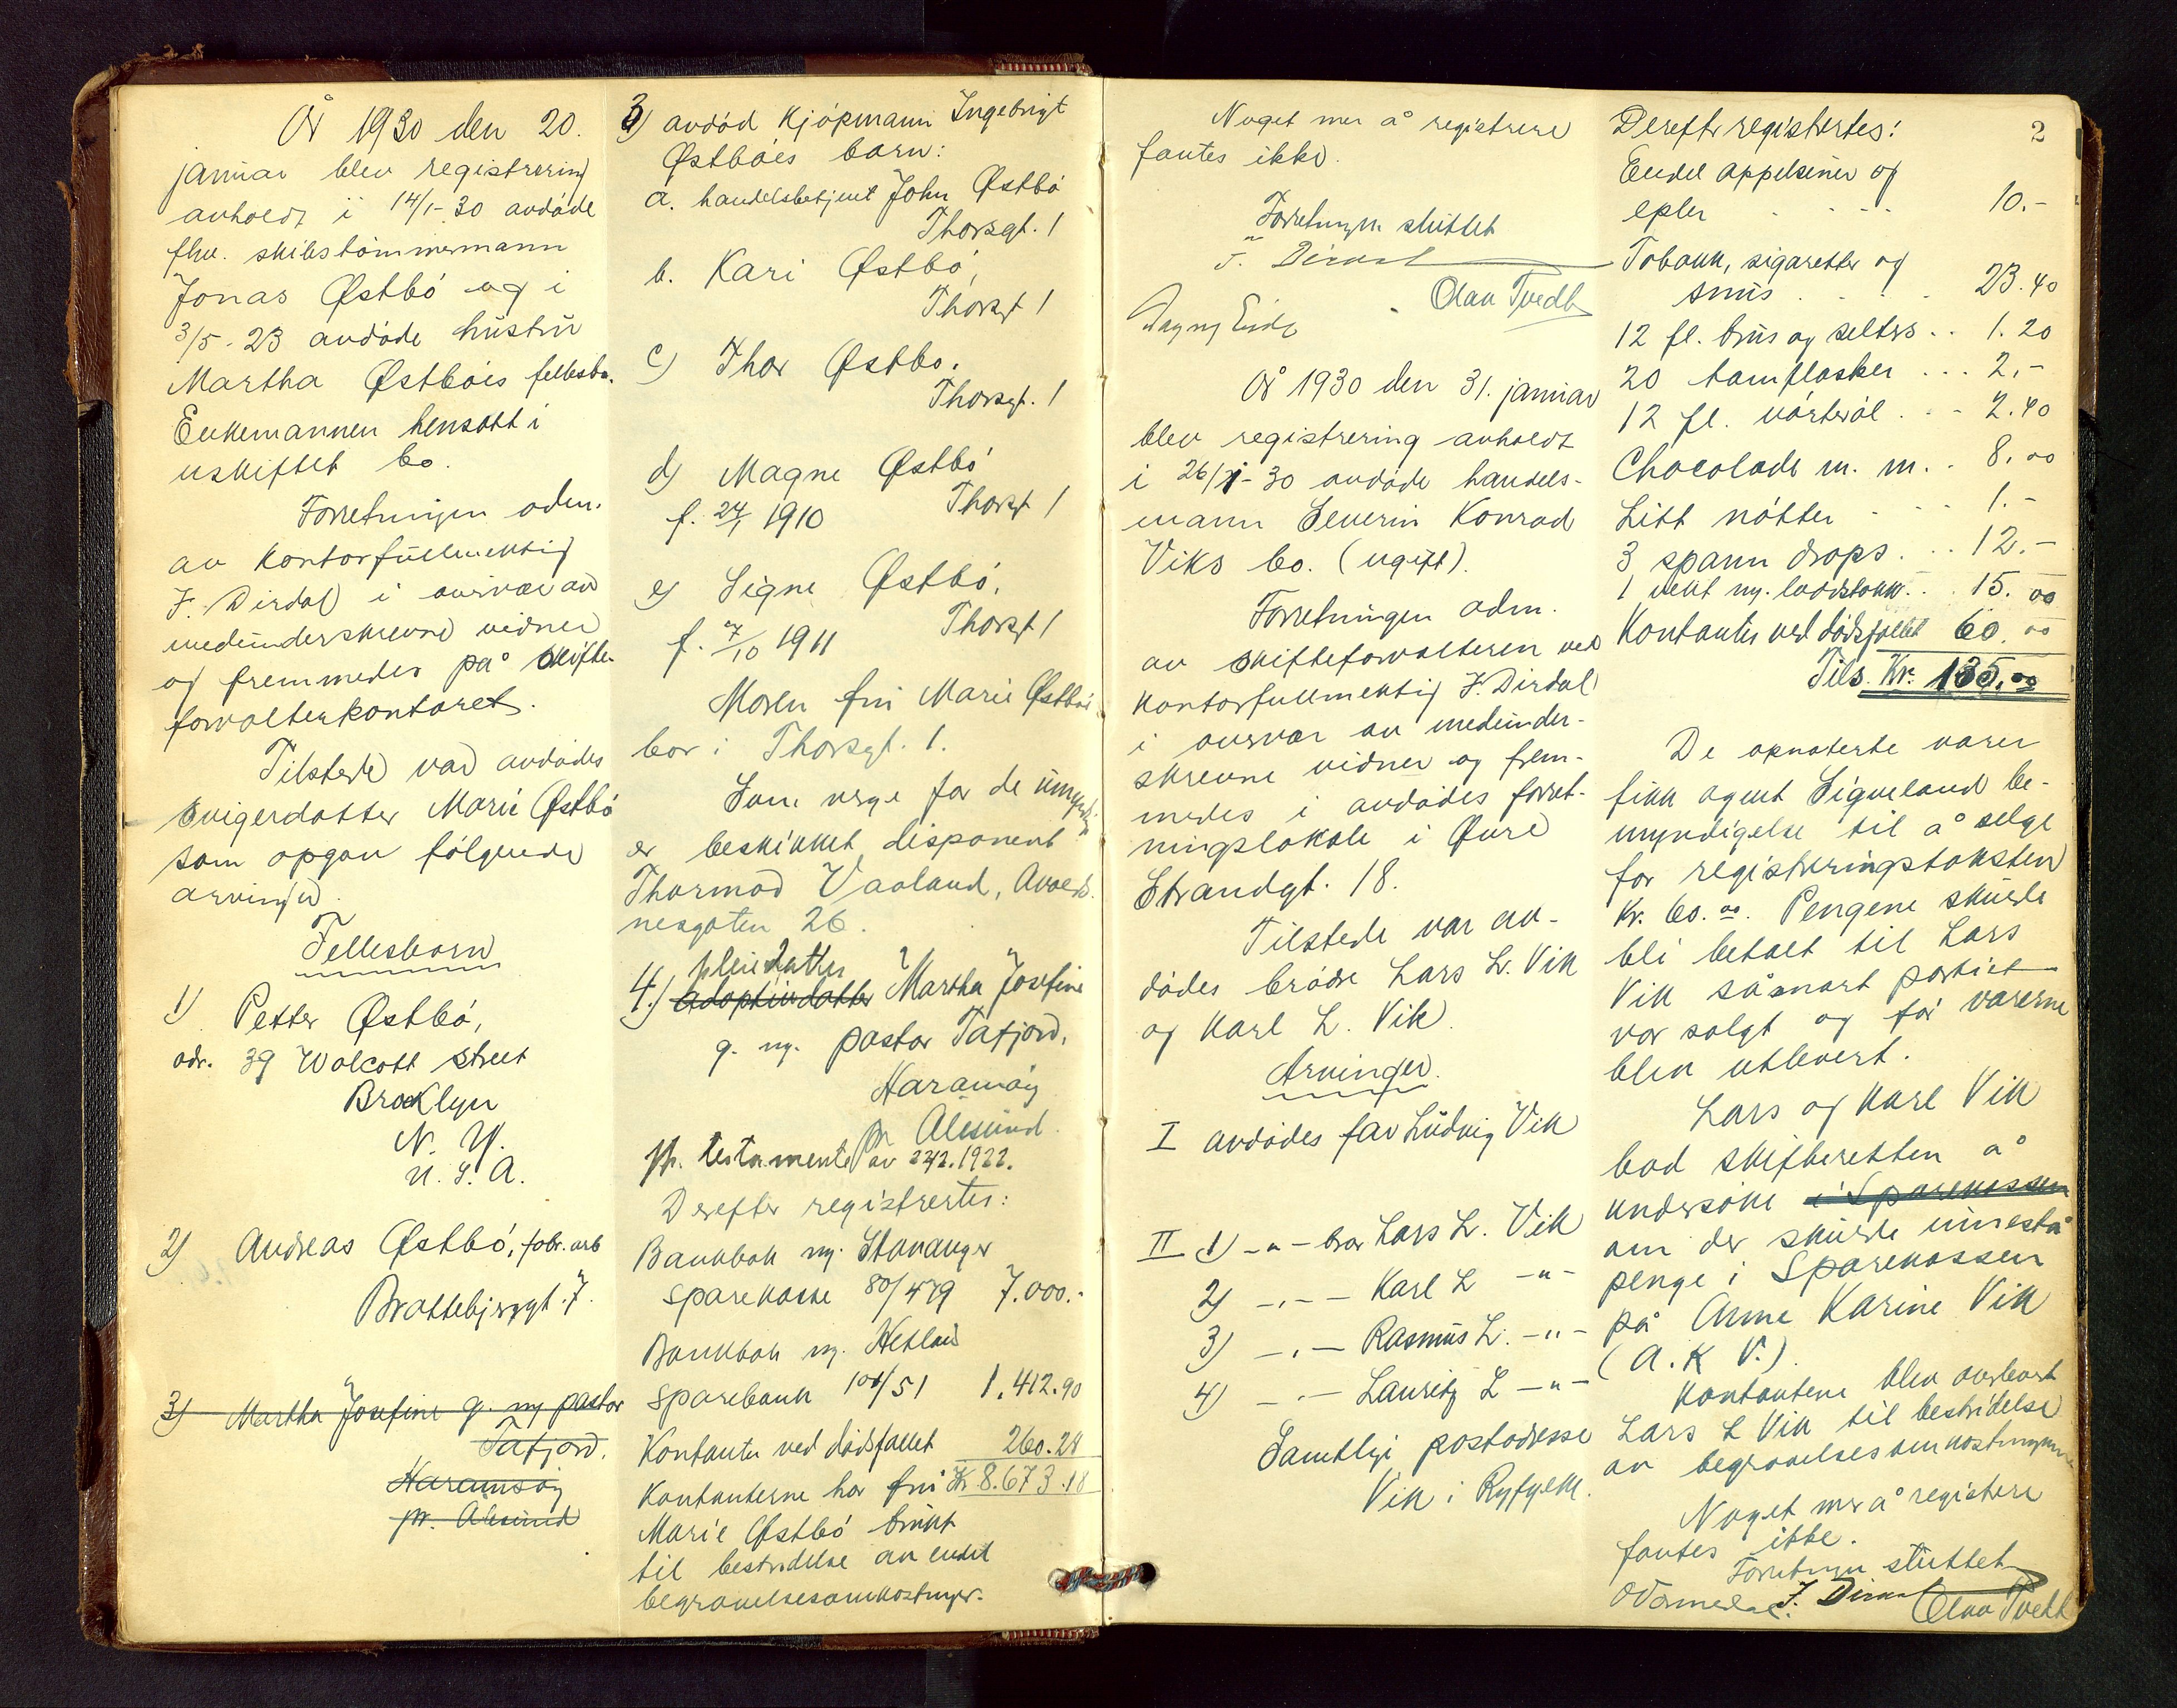 År 1930 den 20.
januar blev registrering
avholdt i 14/1-30 avdøde
fhv. skibstømmermann
Jonas Østbø og i
3/5-23 avdøde hustru
Martha Østbøis fellesbo.
Enkemannen hensatt i
uskiftet bo.
Forretningen adm.
av kontorfullmektig
F. Dirdal i overvær av
medunderskrevne vidner
og fremmedes på skifte-
forvalterkontoret.
Tilstede var avdødes
svigerdatter Marie Østbø
som opgav følgende
arvinger.
Fellesbarn
1) Petter Østbø,
adr. 39 Wolcott street
Brooklyn
N. Y.
U. S. A.
2) Andreas Østbø, fabr. arb
Brattebjergt. 7.
3) Martha Josefine g. m/ pastor
Tafjord.
Haramsøy
pr. Ålesund
3) avdød kjøpmann Ingebrigt
Østbøes barn:
a. handelsbetjent John Østbø
Thorsgt. 1
b. Kari Østbø,
Thorsgt 1
c) Thor Østbø.
Thorsgt. 1
d) Magne Østbø
f. 24/1 1910 Thorsgt 1
e) Signe Østbø,
f. 7/10 1911 Thorsgt 1
Moren fru Marie Østbø
bor i Thorsgt. 1.
Som verge for de umyndige
er beskikket disponent
Thormod Vaaland,
nesgaten 26.
pleiedatter
4.) adoptivdatter Martha Josefine
g. m. pastor Tafjord,
Haramsøy
pr Ålesund.
ifl. testamente av 24/2.1922.
Derefter registrertes:
Bankbok m. Stavanger
Sparekasse 80/479 7.000.-
Bankbok m. Hetland
Sparebank 101/51 1.412.90
Kontanter ved dødsfallet 260.28
Kontanterne har fru Kr 8.673.18
Marie Østbø brukt
til bestridelse av endel
begravelsesomkostninger.
Noget mer å registrere
fantes ikke.
Forretningen sluttet
F. Dirdal
Olav Tvedt
Dagny Eide
År 1930 den 31. januar
blev registrering avholdt
i 26/1-30 avdøde handels-
mann Severin Konrad
Viks bo. (ugift).
Forretningen adm.
av skifteforvalteren ved
kontorfullmektig F. Dirdal
i overvær av medunder-
skrevne vidner og frem-
medes i avdødes forret-
ningslokale i Øvre
Strandgt. 18.
Tilstede var av-
dødes brødre Lars L. Vik
og Karl L. Vik.
Arvinger.
I avdødes far Ludvig Vik
II 1) -"- bror Lars L. Vik
2) -"- Karl L -"-
3) -"- Rasmus L. -"-
4) -"- Lauritz L -"-
Samtlige postadresse
Vik i Ryfylke.
2
Derefter registrertes:
Endel appelsiner og
epler . . . . 10.-
Tobakk, sigaretter og
snus . . . . 23.40
12 fl. brus og selters . . 1.20
20 tomflasker . . . 2.-
12 fl. vørterøl . . . 2.40
Chocolade m. m. . 8.00
Litt nøtter . . . 1.-
3 spann drops . . . 12.-
1 vekt m. loddstokk . . . 15.00
Kontanter ved dødsfallet 60.00
Tils. Kr. 135.00
De opnoterte varer
fikk agent Sigveland be-
myndigelse til å selge
for registreringstaksten
Kr. 60.00. Pengene skulde
bli betalt til Lars
Vik såsnart partiet
var solgt og før varerne
blev utlevert.
Lars og Karl Vik
bad skifteretten å
undersøke i Sparekassen
om der skulde innestå
penge i Sparekassen
på Anne Karine Vik
(A. K V.).
Kontantene blev overlevert
Lars L Vik til bestridelse
av begravelsesomkostningene
Noget mer å registere
fantes ikke.
Forretningen sluttet
F. Dirdal
Olav Tvedt